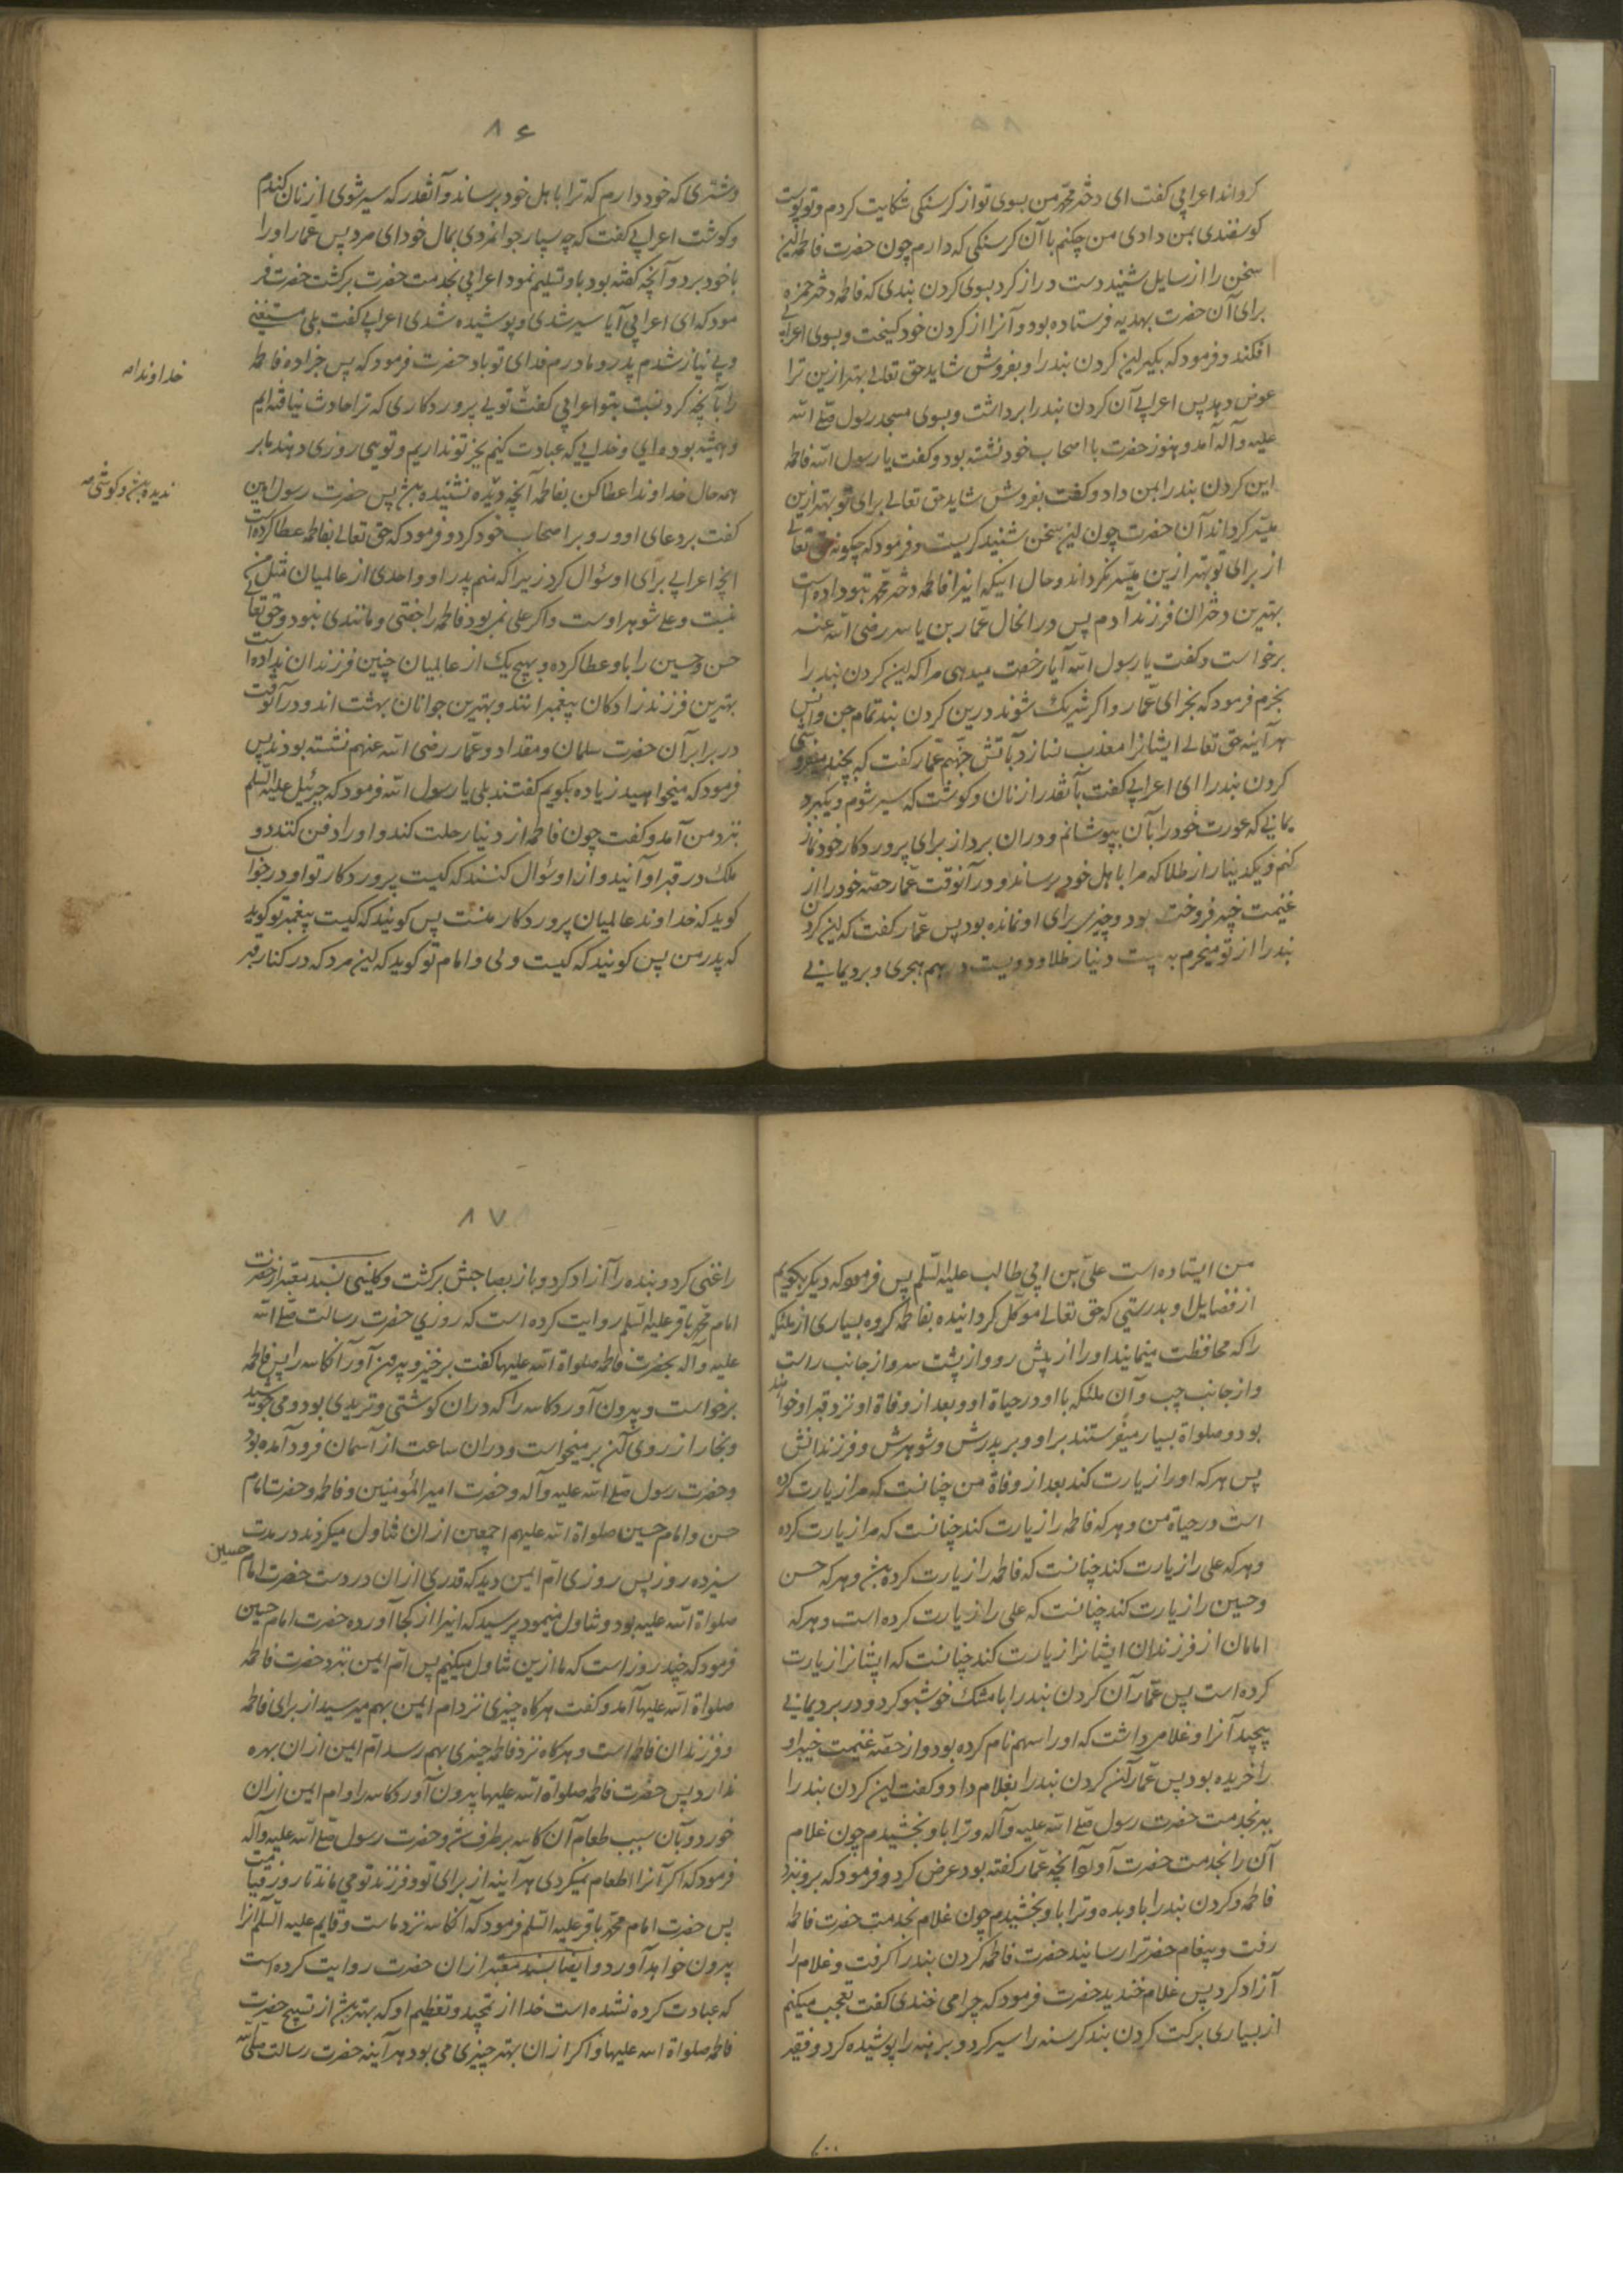 کرواند اعرابی گفت ای دختر محمد من بسوی تو از کرسنکی شکایت کردم و تو پوست
کوسفندی بمن دادی من چکنم با آن کرسنکی که دارم چون حضرت فاطمه این
سخن را از سایل شنید دست دراز کرد بسوی کردن بندی که فاطمه دختر حمزه
برای آن حضرت بهدیه فرستاده بود و آنرا از کردن خود کیخت و بسوی اعرابی
افکند و فرمود که بکیر این کردن بند را و بفروش شاید حق تعالی بهتر ازین ترا
عوض دهد پس اعرابی آن کردن بند را برداشت و بسوی مسجد رسول صلی الله
علیه و آله آمد و هنوز حضرت با اصحاب خود نشسته بود و کفت یا رسول الله فاطمه
این کردن بند را بمن داد و کفت بفروش شاید حق تعالی برای تو بهتر ازین
میسر کرداند آن حضرت چون این سخن شنید کریست و فرمود که چکونه حق تعالی
از برای تو بهتر ازین میسر نکرداند و حال اینکه اینرا فاطمه دختر محمد بتو داده است
بهترین دختران فرزند آدم پس در انحال عمار بن یاسر رضی الله عنه
برخواست و کفت یا رسول الله آیا رخصت میدهی مرا که این کردن بند را
بخرم فرمود که بخر ای عمار و اکر شریک شوند درین کردن بند تمام جن و انس
هر آینه حق تعالی ایشانرا معذب نسازد بآتش جهنم عمار کفت که بچند میفروشی
کردن بند را ای اعرابی کفت بآنقدر از نان و کوشت که سیر شوم و یکبرد
یمانی که عورت خود را بآن بپوشانم و دران بردار برای پروردکار خود نماز
کنم و یکدینار از طلا که مرا باهل خود برساند و در آنوقت عمار حصه خود را از
غنیمت خیبر فروخته بود و چیزی برای او نمانده بود پس عمار کفت که این کردن
بند را از تو میخرم به بیست دینار طلا و دویست درهم هجری و برد یمانی
۸۶
و شتری که خود دارم که ترا باهل خود برساند و آنقدر که سیر شوی از نان کندم
و کوشت اعرابی کفت که چه بسیار جوانمردی بمال خود ای مرد پس عمار او را
با خود برد و آنچه کفته بود باو تسلیم نمود اعرابی بخدمت حضرت برکشت حضرت فر
مود که ای اعرابی آیا سیر شدی و پوشیده شدی اعرابی کفت بلی مستغنی
و بی نیاز شدم پدر و مادرم فدای تو باد حضرت فرمود که پس جزا ده فاطمه
را بآنچه کرد نسبت بتو اعرابی کفت تویی پروردکاری که ترا حادث نیافته ایم
و همیشه بوده ای و خدایی که عبادت کنیم بجز تو نداریم و تویی روزی دهنده ما بر
همه حال خداوندا عطا کن بفاطمه آنچه دیده نشنیده باش پس حضرت رسول امین
کفت بر دعای او و رو بر اصحاب خود کرد و فرمود که حق تعالی بفاطمه عطا کرده است
انچه اعرابی برای او سؤال کرد زیرا که منم پدر او و احدی از عالمیان مثل من
نیست و علی شوهر اوست و اکر علی نمی بود فاطمه را جفتی و مانندی نبود و حق تعالی
حسن و حسین را باو عطا کرده و بهیچ یک از عالمیان چنین فرزندان نداده است
بهترین فرزند زادکان پیغمبرانند و بهترین جوانان بهشت اند و در آنوقت
در برابر آن حضرت سلمان و مقداد و عمار رضی الله عنهم نشسته بودند پس
فرمود که میخواهید زیاده بکویم کفتند بلی یا رسول الله فرمود که جبرئیل علیه السلم
نزد من آمد و کفت چون فاطمه از دنیا رحلت کند و او را دفن کنند دو
ملک در قبر او آیند و از او سؤال کنند که کیست پروردکار تو او در جواب
کوید که خداوند عالمیان پروردکار منست پس کویند که کیست پیغمبر تو کوید
که پدر من پس کویند که کیست ولی و امام تو کوید که این مرد که در کنار قبر
خداوندا صه
من ایستاده است علی بن ابی طالب علیه السلم پس فرمود که دیکر بکویم
از فضایل او بدرستی که حق تعالی موکل کردانیده بفاطمه کروه بسیاری از ملئکه
را که محافظت مینمایند او را از پیش رو و از پشت سر و از جانب راست
و از جانب چپ و آن ملئکه با او در حیاة او و بعد از وفاة او نزد قبر او خواهند
بود و صلواة بسیار میفرستند بر او و بر پدرش و شوهرش و فرزندانش
پس هر که او را زیارت کند بعد از وفاة من چنانست که مرا زیارت کرده
است در حیاة من و هر که فاطمه را زیارت کند چنانست که مرا زیارت کرده
و هر که علی را زیارت کند چنانست که فاطمه را زیارت کرده باش و هر که حسن
و حسین را زیارت کند چنانست که علی را زیارت کرده است و هر که
امامان از فرزندان ایشانرا زیارت کند چنانست که ایشانرا زیارت
کرده است پس عمار آن کردن بند را با مشک خوشبو کرد و در برد یمانی
پیچید آنرا و غلامی داشت که او را سهم نام کرده بود و از حصه غنیمت خیبر او
را خریده بود پس عمار آن کردن بند را بغلام داد و کفت این کردن بند را
ببر بخدمت حضرت رسول صلی الله علیه و آله و ترا باو بخشیدم چون غلام
آن را بخدمت حضرت آورد و آنچه عمار کفته بود عرض کرد و فرمود که برو نزد
فاطمه و کردن بند را باو بده و ترا باو بخشیدم چون غلام بخدمت حضرت فاطمه
رفت و پیغام حضرترا رسانید حضرت فاطمه کردن بند را کرفت و غلام را
آزاد کرد پس غلام خندید حضرت فرمود که چرا می خندی کفت تعجب میکنم
از بسیاری برکت کردن بند کرسنه را سیر کرد و برهنه را پوشیده کرد و فقیر
۸۷
را غنی کرد و بنده را آزاد کرد و باز بصاحبش برکشت و کلینی بسند معتبر از حضرت
امام محمد باقر علیه السلم روایت کرده است که روزی حضرت رسالت صلی الله
علیه و آله بحضرت فاطمه صلواة الله علیها کفت برخیز و بیرون آور آنکاسه را پس فاطمه
برخواست و بیرون آورد کاسه را که دران کوشتی و تریدی بود و می جوشید
و بخار از روی آن برمیخواست و دران ساعت از آسمان فرود آمده بود
و حضرت رسول صلی الله علیه و آله و حضرت امیر المؤمنین و فاطمه و حضرت امام
حسن و امام حسین صلواة الله علیهم اجمعین ازان تناول میکردند در مدت
سیزده روز پس روزی ام ایمن دید که قدری ازان در دست حضرت امام حسین
صلواة الله علیه بود و تناول مینمود پرسید که اینرا از کجا آورده حضرت امام حسین
فرمود که چند روز است که ما ازین تناول میکنیم پس ام ایمن نزد حضرت فاطمه
صلواة الله علیها آمد و کفت هرکاه چیزی نزد ام ایمن بهم میرسید از برای فاطمه
و فرزندان فاطمه است و هرکاه نزد فاطمه چیزی بهم رسد ام ایمن ازان بهره
ندارد پس حضرت فاطمه صلواة الله علیها بیرون آورد کاسه را و ام ایمن ازان
خورد و بآن سبب طعام آن کاسه برطرف شد و حضرت رسول صلی الله علیه و آله
فرمود که اکر آنرا اطعام نمیکردی هر آینه از برای تو و فرزند تو می ماند تا روز قیامت
پس حضرت امام محمد باقر علیه السلم فرمود که آنکاسه نزد ماست و قایم علیه السلم آنرا
بیرون خواهد آورد و ایضا بسند معتبر ازان حضرت روایت کرده است
که عبادت کرده نشده است خدا از تمجید و تعظیم او که بهتر باش از تسبیح حضرت
فاطمه صلواة الله علیها و اکر ازان بهتر چیزی می بود هر آینه حضرت رسالت صلی الله